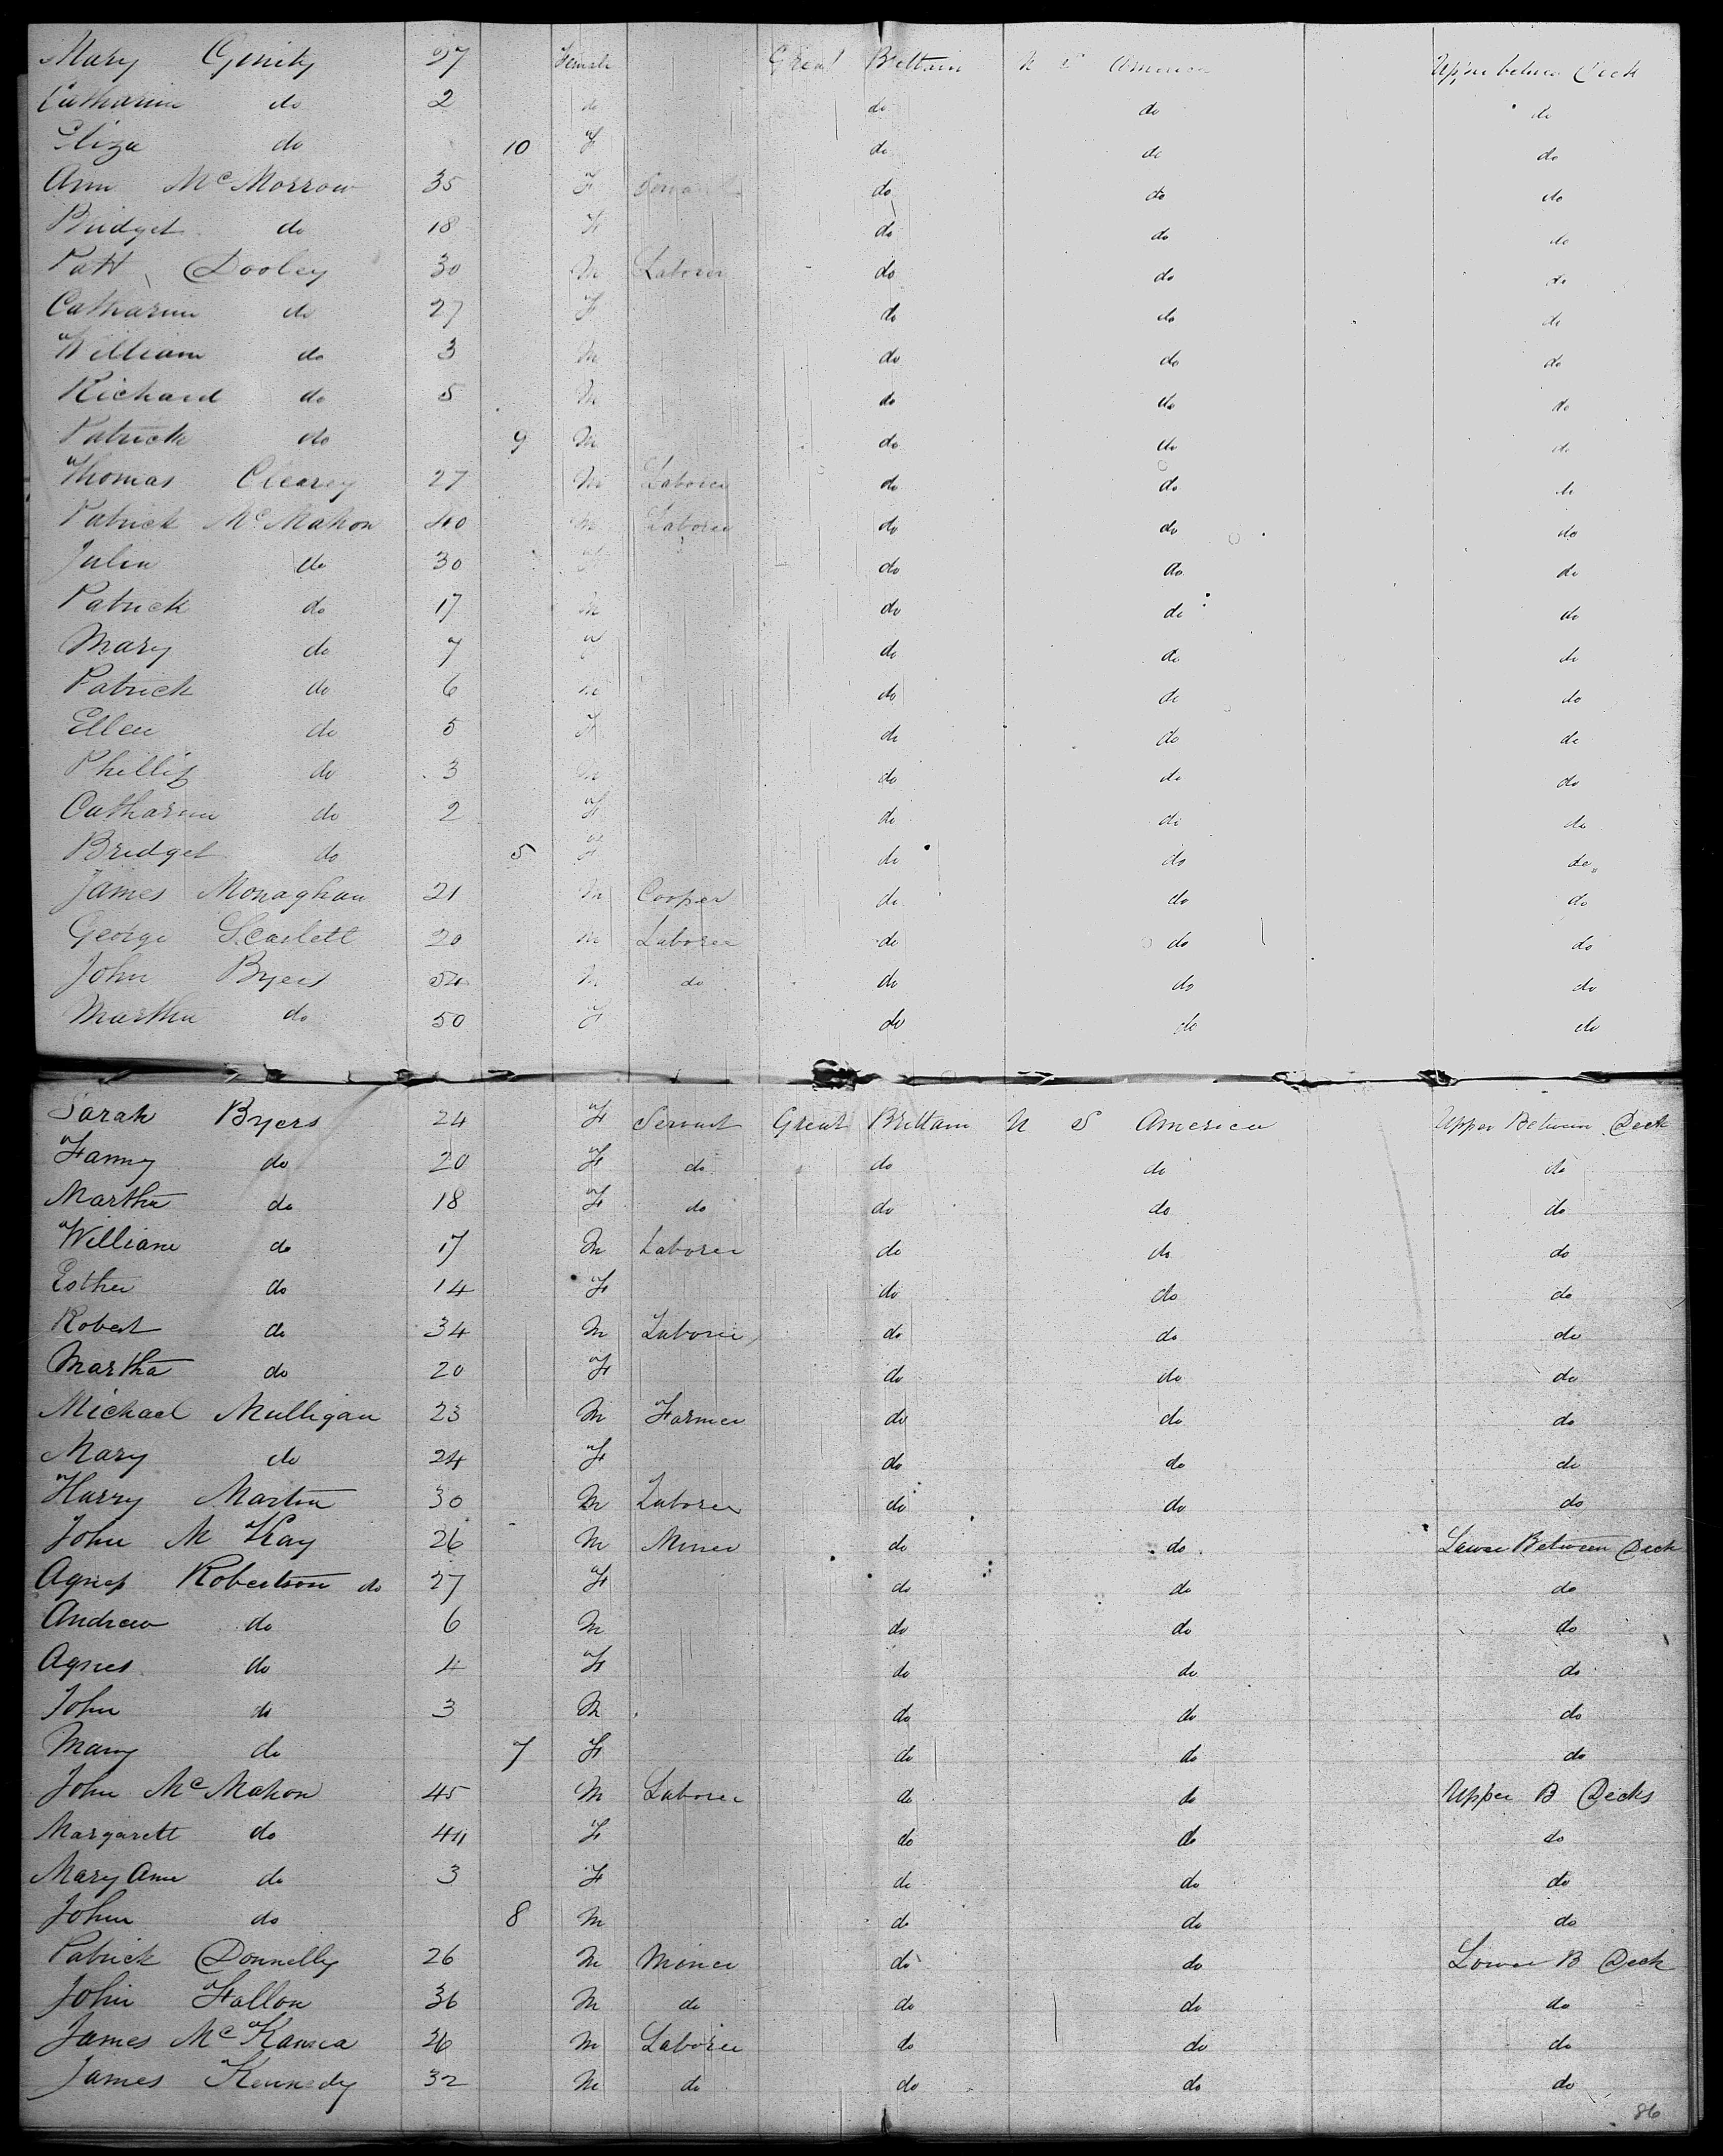 Mary Gerrity 27 Female Great Brittain U S America Upper between Deck
Catharine do 2 do do do do
Eliza do 10 F do do do
Ann McMorrow 35 F Servant do do do
Bridget do 18 F do do do
Patt Dooley 30 M Laborer do do do
Catharine do 27 F do do do
William do 3 M do do do
Richard do 5 M do do do
Patrick do 9 M do do do
Thomas Clearey 27 M Laborer do do do
Patrick McMahon 40 M Laborer do do do
Julia do 30 F do do do
Patrick do 17 M do do do
Mary do 7 F do do do
Patrick do 6 M do do do
Ellen do 5 F do do do
Phillip do 3 M do do do
Catharine do 2 F do do do
Bridget do 5 F do do do
James Monaghan 21 M Cooper do do do
George Scarlett 20 M Laborer do do do
John Byers M do do do do
Martha do 50 F do do do
Sarah Byers 24 F Servant Great Brittain U S America Upper Between Deck
Fanny do 20 F do do do do
Martha do 18 F do do do do
William do 17 M Laborer do do do
Esther do 14 F do do do
Robert do 34 M Laborer do do do
Martha do 20 F do do do
Michael Mulligan 23 M Farmer do do do
Mary do 24 F do do do
Harry Martin 30 M Laborer do do do
John M Kay 26 M Miner do do Lower Between Deck
Agnes Robertson do 27 F do do do
Andrew do 6 M do do do
Agnes do 4 F do do do
John do 3 M do do do
Mary do 7 F do do do
John McMahon 45 M Laborer do do Upper B Decks
Margarett do F do do do
Mary Ann do 3 F do do do
John do 8 M do do do
Patrick Donnelly 26 M Miner do do Lower B Deck
John Fallon 36 M do do do do
James Mc 36 M Laborer do do do
James Kennedy 32 M do do do do
86